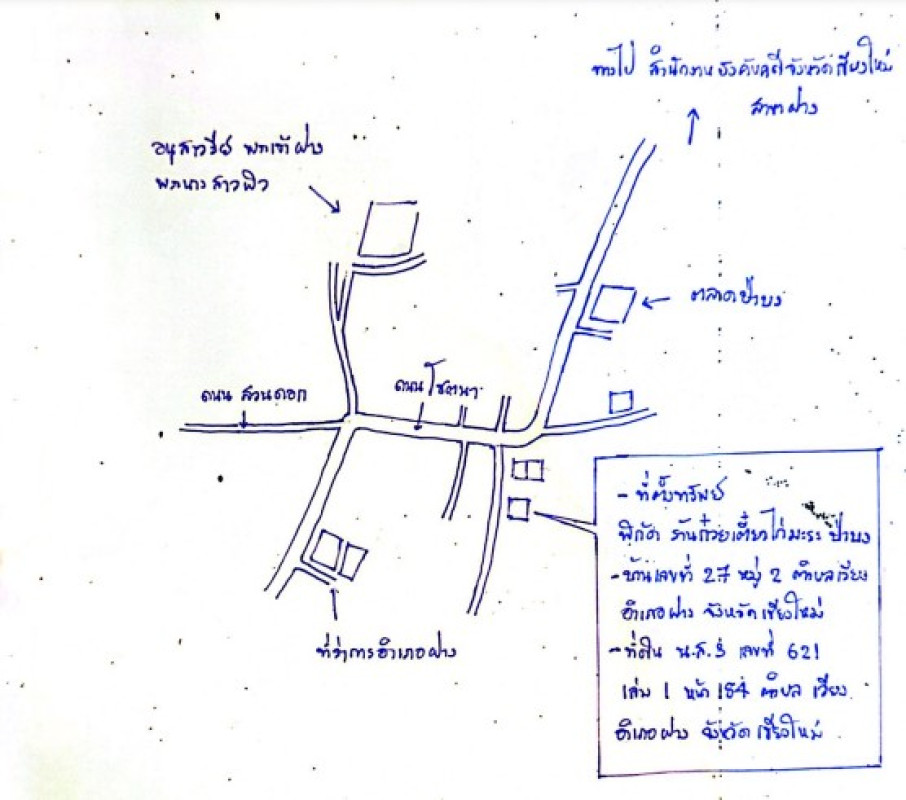 ทางไป สำนักงานบังคับคดีจังหวัดเชียงใหม่
สาขาฝาง
อนุสาวรีย์ พระเจ้าฝาง
พระนางสามผิว
ตลาดป่าบง
ถนน สวนดอก
ถนนโชตนา
ที่ว่าการอำเภอฝาง
- ที่ตั้งทรัพย์
พิกัด ร้านก๋วยเตี๋ยวไก่มะระ ป่าบง
- บ้านเลขที่ 27 หมู่ 2 ตำบลเวียง
อำเภอฝาง จังหวัดเชียงใหม่
- ที่ดิน น.ส.3 เลขที่ 621
เล่ม 1 หน้า 154 ตำบล เวียง
อำเภอฝาง จังหวัดเชียงใหม่